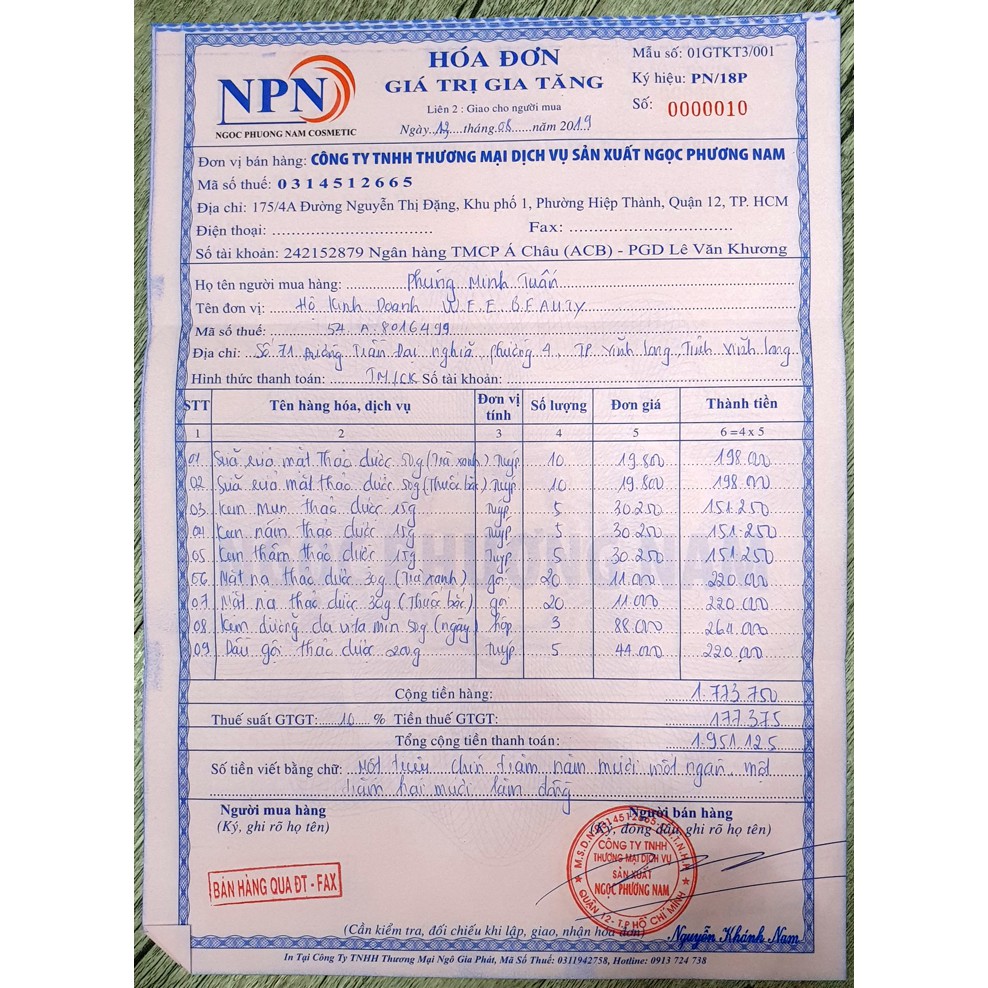 NPN
NGOC PHUONG NAM COSMETIC
HÓA ĐƠN
GIÁ TRỊ GIA TĂNG
Liên 2 : Giao cho người mua
Ngày..13....tháng.08......năm 2019
Mẫu số: 01GTKT3/001
Ký hiệu: PN/18P
Số: 0000010
Đơn vị bán hàng: CÔNG TY TNHH THƯƠNG MẠI DỊCH VỤ SẢN XUẤT NGỌC PHƯƠNG NAM
Mã số thuế: 0314512665
Địa chỉ: 175/4A Đường Nguyễn Thị Đặng, Khu phố 1, Phường Hiệp Thành, Quận 12, TP. HCM
Điện thoại: Fax:
Số tài khoản: 242152879 Ngân hàng TMCP Á Châu (ACB) - PGD Lê Văn Khương
Họ tên người mua hàng: Phùng Minh Tuấn
Tên đơn vị: Hộ Kinh Doanh W.E.E BEAUTY
Mã số thuế: 54 A.8016499
Địa chỉ: Số 71 đường Trần Đại nghĩa, phường 4, TP. Vĩnh Long, Tỉnh Vĩnh Long
Hình thức thanh toán: TM/CK Số tài khoản:
STT Tên hàng hóa, dịch vụ Đơn vị tính Số lượng Đơn giá Thành tiền
1 2 3 4 5 6 =4 x 5
01 Sữa rửa mặt thảo dược 50g (Trà xanh) Tuýp 10 19.800 198.000
02 Sữa rửa mặt thảo dược 50g (Thuốc bắc) Tuýp 10 19.800 198.000
03 Kem mụn thảo dược 15g Tuýp 5 30.250 151.250
04 Kem nám thảo dược 15g Tuýp 5 30.250 151.250
05 Kem thâm thảo dược 15g Tuýp 5 30.250 151.250
06 Mặt nạ thảo dược 30g (Trà xanh) gói 20 11.000 220.000
07 Mặt nạ thảo dược 30g (Thuốc bắc) gói 20 11.000 220.000
08 Kem dưỡng da vitamin 50g (ngày) hộp 3 88.000 264.000
09 Dầu gội thảo dược 200g Tuýp 5 44.000 220.000
Cộng tiền hàng: 1.773.750
Thuế suất GTGT: 10 % Tiền thuế GTGT: 177.375
Tổng cộng tiền thanh toán: 1.951.125
Số tiền viết bằng chữ: Một triệu chín trăm năm mươi một ngàn, một
trăm hai mươi lăm đồng
Người mua hàng
(Ký, ghi rõ họ tên)
Người bán hàng
(Ký, đóng dấu, ghi rõ họ tên)
BÁN HÀNG QUA ĐT - FAX
M.S.D.N:0314512665-C.T.T.N.H.H
CÔNG TY TNHH
THƯƠNG MẠI DỊCH VỤ
SẢN XUẤT
NGỌC PHƯƠNG NAM
QUẬN 12 - T.P HỒ CHÍ MINH
Nguyễn Khánh Nam
(Cần kiểm tra, đối chiếu khi lập, giao, nhận hóa đơn)
In Tại Công Ty TNHH Thương Mại Ngô Gia Phát, Mã Số Thuế: 0311942758, Hotline: 0913 724 738